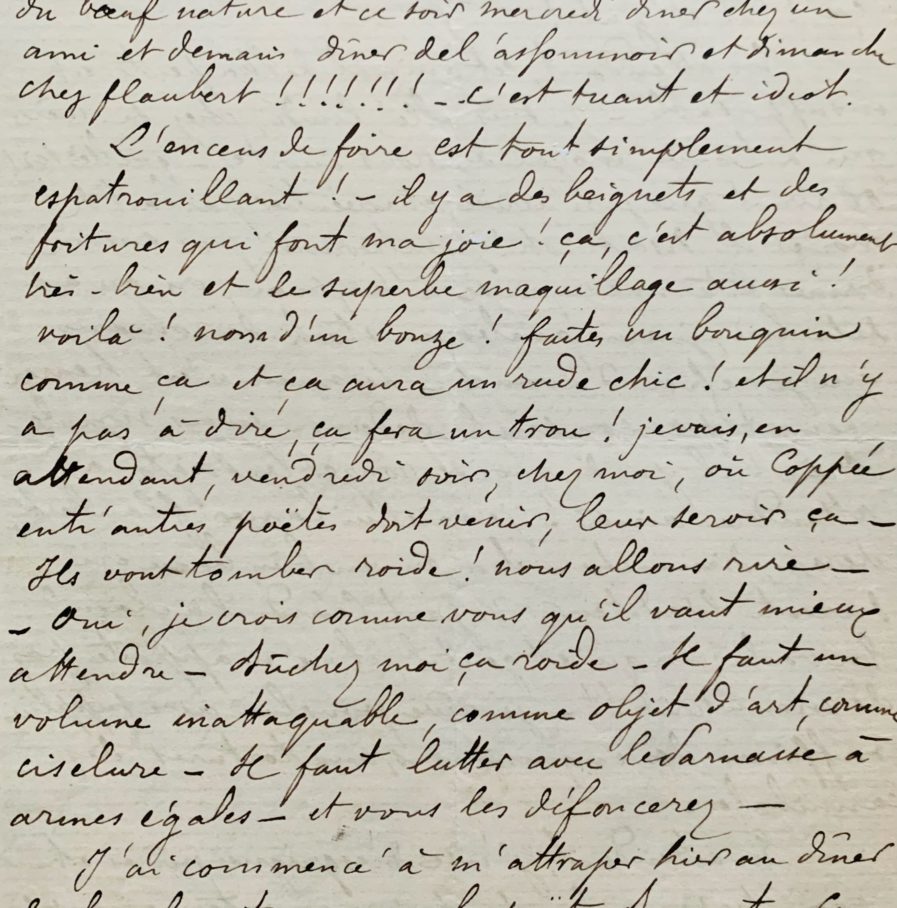 du bœuf nature et ce soir mercredi dîner chez un
ami et demain dîner de l'assommoir et dimanche
chez flaubert !!!!!!! – c'est tuant et idiot.
L'encens de foire est tout simplement
espatrouillant ! – il y a des beignets et des
fritures qui font ma joie ! ça, c'est absolument
très-bien et le superbe maquillage aussi !
voilà ! nom d'un bonze ! faites un bouquin
comme ça et ça aura un rude chic ! et il n'y
a pas à dire, ça fera un trou ! je vais, en
attendant, vendredi soir, chez moi, où Coppée
entr'autres poëtes doit venir, leur servir ça –
Ils vont tomber roide ! nous allons rire –
– Oui, je crois comme vous qu'il vaut mieux
attendre – bûchez moi ça roide – Il faut un
volume inattaquable, comme objet d'art, comme
ciselure – Il faut lutter avec le Parnasse à
armes égales – et vous les défoncerez –
J'ai commencé à m'attraper hier au dîner